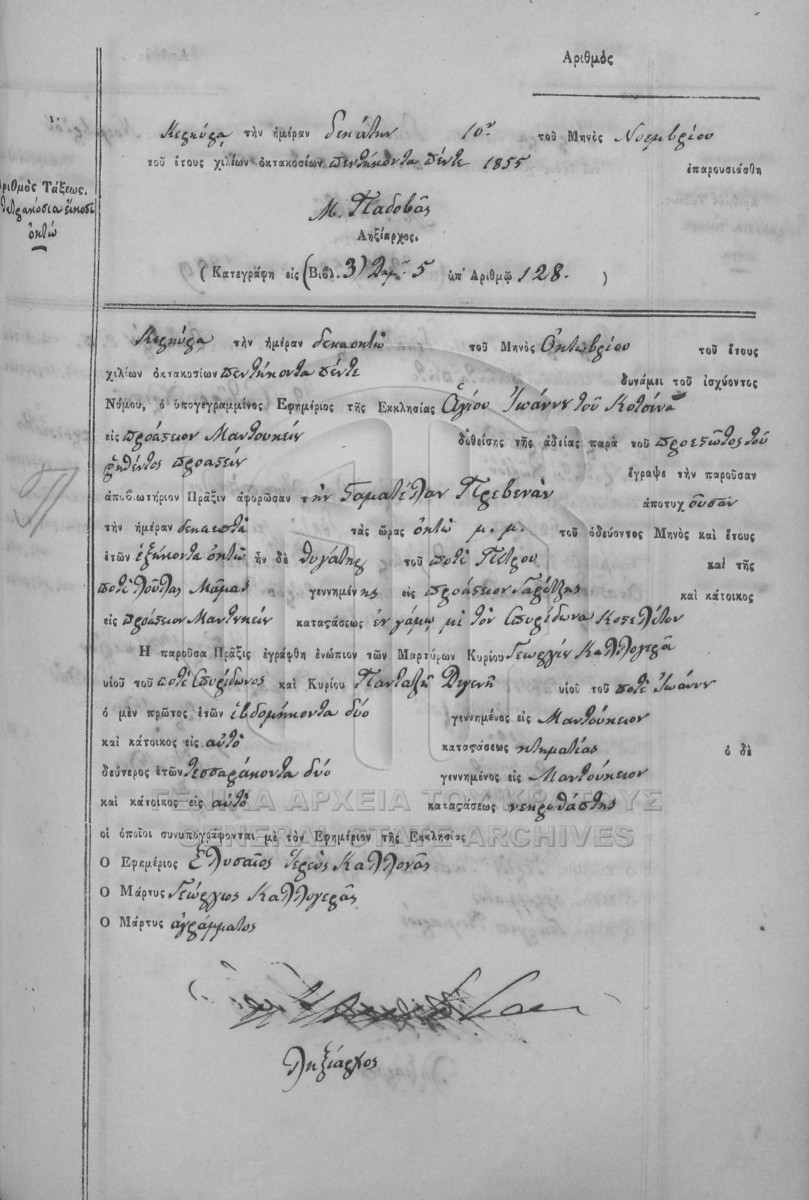 Ἀριθμός
Κερκύρα τὴν ἡμέραν δεκάτην 10ην τοῦ Μηνὸς Νοεμβρίου
τοῦ ἔτους χιλίων ὀκτακοσίων πεντήκοντα πέντε 1855 ἐπαρουσιάσθη
Ἀριθμὸς Τάξεως.
τετρακόσια εἴκοσι
ὀκτώ
Μ. Παδοβᾶς
Ληξίαρχος.
( Κατεγράφη εἰς (Βιβλ. 3) 5 ὑπ' Ἀριθμῷ 128. )
Κερκύρα τὴν ἡμέραν δεκαοκτὼ τοῦ Μηνὸς Ὀκτωβρίου τοῦ ἔτους
χιλίων ὀκτακοσίων πεντήκοντα πέντε δυνάμει τοῦ ἰσχύοντος
Νόμου, ὁ ὑπογεγραμμένος Ἐφημέριος τῆς Ἐκκλησίας Ἁγίου Ἰωάννου τοῦ Κοτσίνα
εἰς προάστειον Μαντουκίου δοθείσης τῆς ἀδείας παρὰ τοῦ προεστῶτος τοῦ
ῥηθέντος προαστείου ἔγραψε τὴν παροῦσαν
ἀποβιωτήριον Πρᾶξιν ἀφορῶσαν τὴν Σταματέλαν Πρεβεζάναν ἀποτυχοῦσαν
τὴν ἡμέραν δεκαεπτὰ τὰς ὥρας ὀκτὼ μ. μ. τοῦ ὁδεύοντος Μηνὸς καὶ ἔτους
ἐτῶν ἑξήκοντα ὀκτὼ ἦν δὲ θυγάτηρ τοῦ ποτὲ Πέτρου καὶ τῆς
ποτὲ Λούλας Μάμας γεννημένης εἰς προάστειον Γαρίτζης καὶ κάτοικος
εἰς προάστειον Μαντουκίου καταςάσεως ἐν γάμῳ μὲ τὸν Σπυρίδωνα
Ἡ παροῦσα Πρᾶξις ἐγράφθη ἐνώπιον τῶν Μαρτύρων Κυρίου Γεωργίου Καλλογερᾶ
υἱοῦ τοῦ ποτὲ Σπυρίδωνος καὶ Κυρίου Πανταζῆ Διγενῆ υἱοῦ τοῦ ποτὲ Ἰωάννου
ὁ μὲν πρῶτος ἐτῶν ἑβδομήκοντα δύο γεννημένος εἰς Μαντούκιον
καὶ κάτοικος εἰς αὐτὸ καταςάσεως κτηματίας ὁ δὲ
δεύτερος ἐτῶν τεσσαράκοντα δύο γεννημένος εἰς Μαντούκειον
καὶ κάτοικος εἰς αὐτὸ καταςάσεως νεκροθάπτης
ΓΕΝΙΚΑ ΑΡΧΕΙΑ ΤΟΥ ΚΡΑΤΟΥΣ
οἱ ὁποῖοι συνυπογράφονται μὲ τὸν Ἐφημέριον τῆς Ἐκκλησίας
GENERAL STATE ARCHIVES
Ὁ Ἐφημέριος Ἐλυσαῖος Ἱερεὺς Καλλονᾶς
Ὁ Μάρτυς Γεώργιος Καλλογερᾶς
Ὁ Μάρτυς ἀγράμματος
Ληξίαρχος